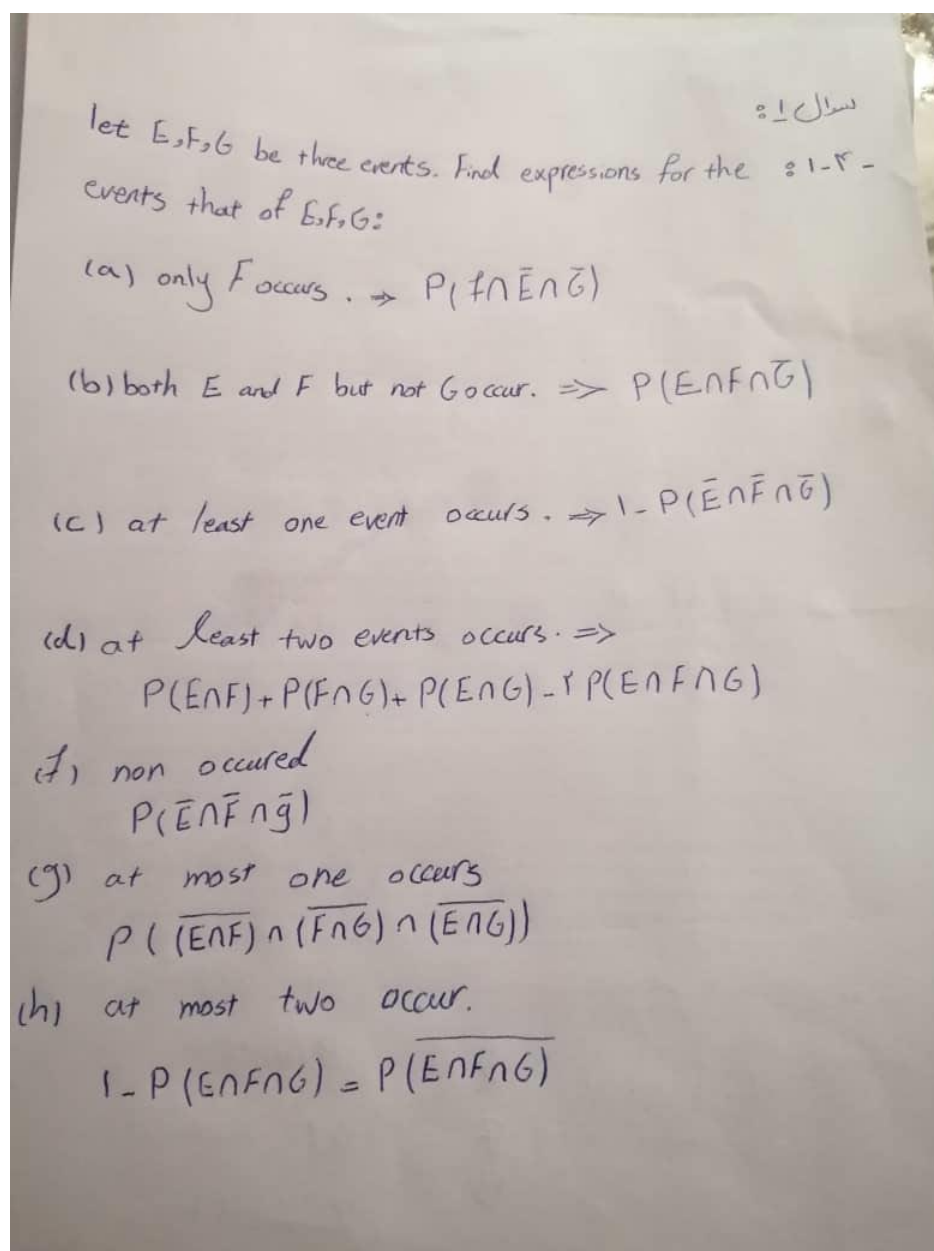 سوال ۱:
let E,F,G be three events. Find expressions for the :۱-۳-
events that of E,F,G:
(a) only F occurs. ⇒ P(f∩Ē∩Ḡ)
(b) both E and F but not G occur. ⇒ P(E∩F∩Ḡ)
(c) at least one event occurs. ⇒ 1-P(Ē∩F̄∩Ḡ)
(d) at least two events occurs. ⇒
P(E∩F)+P(F∩G)+P(E∩G)-۲P(E∩F∩G)
(f) non occured
P(Ē∩F̄∩ḡ)
(g) at most one occurs
P((E̅∩̅F̅)∩(F̅∩̅G̅)∩(E̅∩̅G̅))
(h) at most two occur.
1-P(E∩F∩G)=P(E̅∩̅F̅∩̅G̅)